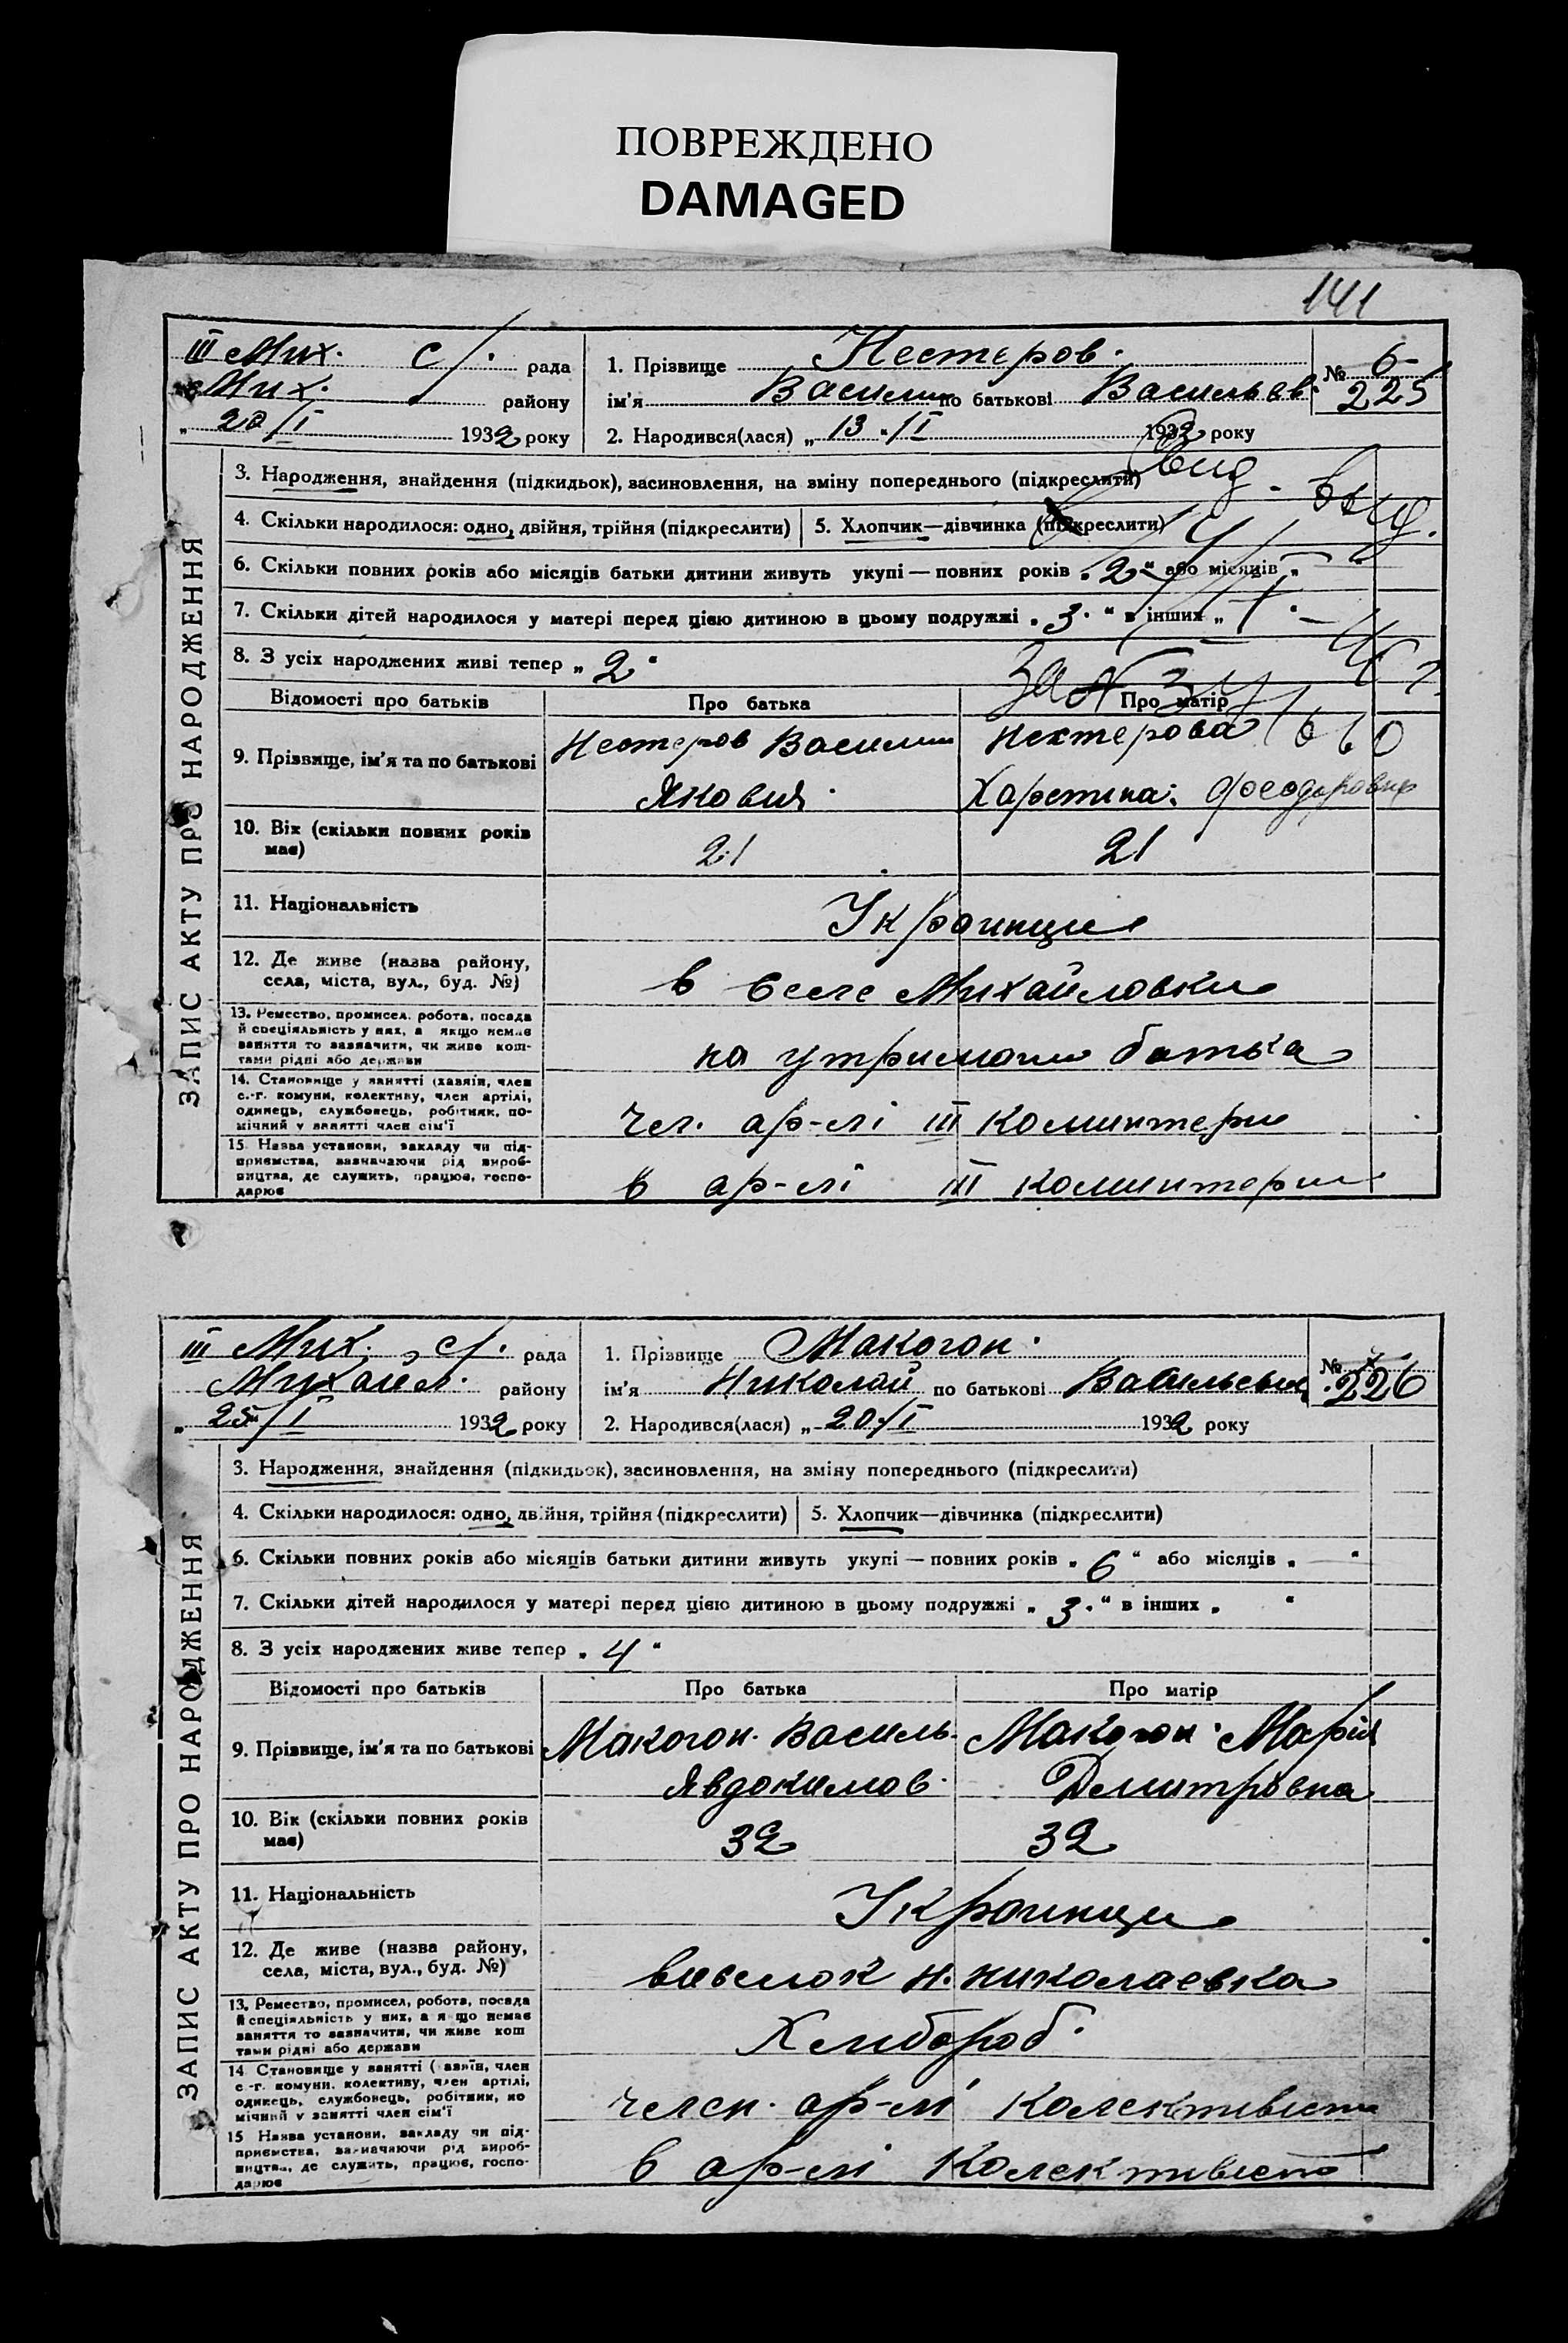 ПОВРЕЖДЕНО
DAMAGED
141
III Мих. с/. рада
Мих. району
1932 року
1. Прізвище Нестеров.
ім'я Василий по батькові Васильев
2. Народився(лася) „ 13 "/I 1932 року
№ 6
225
ЗАПИС АКТУ ПРО НАРОДЖЕННЯ
3. Народження, знайдення (підкидьок), засиновлення, на зміну попереднього (підкреслити)
4. Скільки народилося: одно, двійня, трійня (підкреслити)
5. Хлопчик—дівчинка (підкреслити)
6. Скільки повних років або місяців батьки дитини живуть укупі — повних років „ 2 " або місяців „
7. Скільки дітей народилося у матері перед цією дитиною в цьому подружжі „ 3. " в інших „
8. З усіх народжених живі тепер „ 2 "
Відомості про батьків
Про батька
Про матір
9. Прізвище, ім'я та по батькові
Нестеров Василий
Якович.
Нехтерова
Харетина: Феодоровна
10. Вік (скільки повних років має)
21
21
11. Національність
Украинци
12. Де живе (назва району,
села, міста, вул., буд. №)
в селе Михайловки
13. Ремество, промисел, робота, посада
й спеціяльність у них, а якщо немає
заняття то зазначити, чи живе кош-
тами рідні або держави
на утримани батька
14. Становище у занятті (хазяїн, член
с.-г. комуни, колективу, член артілі,
одинець, службовець, робітник, по-
мічний у занятті член сім'ї
чел. ар-лі III Коминтерн
15. Назва установи, закладу чи під-
приємства, зазначаючи рід вироб-
ництва, де служить, працює, госпо-
дарює
в ар-лі III коминтерни
III Мих. с/. рада
Михайл. району
„ 25/I 1932 року
1. Прізвище Макогон.
ім'я Николай по батькові Васильевич
2. Народився(лася) „ 20/I 1932 року
№
226
ЗАПИС АКТУ ПРО НАРОДЖЕННЯ
3. Народження, знайдення (підкидьок), засиновлення, на зміну попереднього (підкреслити)
4. Скільки народилося: одно, двійня, трійня (підкреслити)
5. Хлопчик—дівчинка (підкреслити)
6. Скільки повних років або місяців батьки дитини живуть укупі — повних років „ 6 " або місяців „ — "
7. Скільки дітей народилося у матері перед цією дитиною в цьому подружжі „ 3. " в інших „ "
8. З усіх народжених живе тепер „ 4 "
Відомості про батьків
Про батька
Про матір
9. Прізвище, ім'я та по батькові
Макогон. Василь.
Явдокимов.
Макогон. Марія
Демитровна
10. Вік (скільки повних років
має)
32
32
11. Національність
Украинци
12. Де живе (назва району,
села, міста, вул., буд. №)
виселок н. николаевка
13. Ремество, промисел, робота, посада
й спеціяльність у них, а якщо немає
заняття то зазначити, чи живе кош
тами рідні або держави
Хлибороб.
14 Становище у занятті (хазяїн, член
с.-г. комуни, колективу, член артілі,
одинець, службовець, робітник, по
мічний у занятті член сім'ї
член. ар-лі Колективіст
15 Назва установи, закладу чи під-
приємства, зазначаючи рід вироб-
ництва, де служить, працює, госпо-
дарює
в ар-лі Колективіст